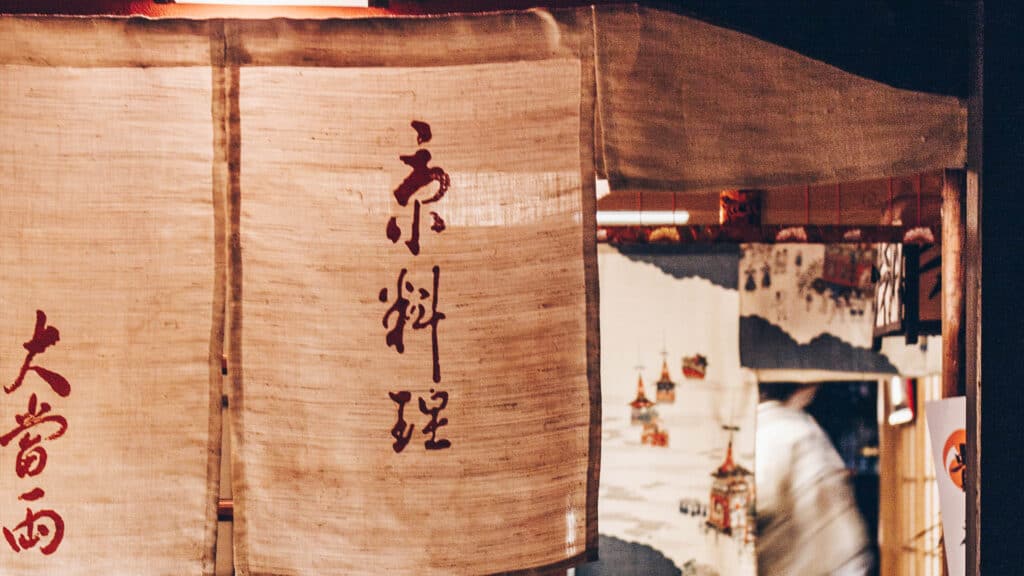 京料理
大當両